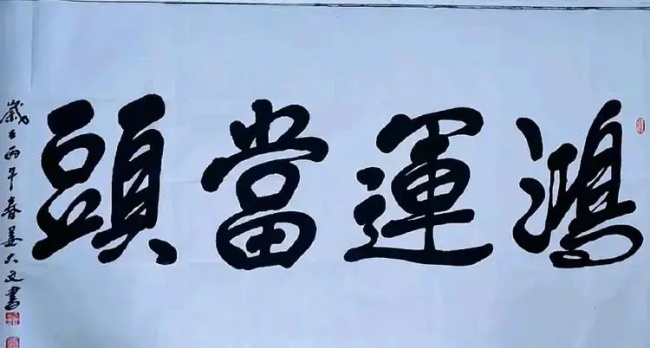 鴻運當頭
歲丙午春姜大文書